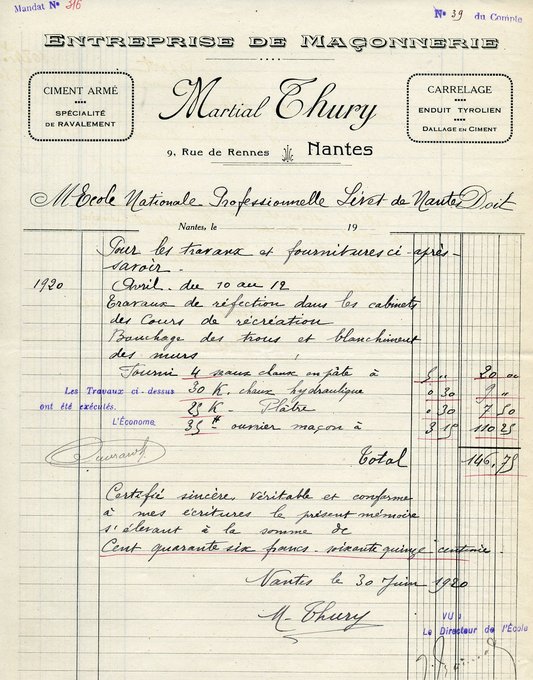 Mandat No 316
No 39 du Compte
ENTREPRISE DE MAÇONNERIE
CIMENT ARMÉ
SPÉCIALITÉ
DE RAVALEMENT
Martial Thury
9, Rue de Rennes Nantes
CARRELAGE
ENDUIT TYROLIEN
DALLAGE EN CIMENT
M Ecole Nationale Professionnelle Livet de Nantes Doit
Nantes, le 19
Pour les travaux et fournitures ci-après
savoir.
1920 Avril. du 10 au 12
Travaux de réfection dans les cabinets
des Cours de récréation
Bouchage des trous et blanchiment
des murs
Fourni 4 seaux chaux en pâte à 5 " 20 00
30 K. chaux hydraulique 0 30 9 "
25 K. Plâtre 0 30 7 50
35 h ouvrier maçon à 3 15 110 25
Les Travaux ci-dessus
ont été exécutés.
L'Économe
Total 146,75
Certifié sincère, véritable et conforme
à mes écritures le présent mémoire
s'élevant à la somme de
Cent quarante six francs - soixante quinze centime.
Nantes le 30 Juin 1920
M. Thury
VU:
Le Directeur de l'École